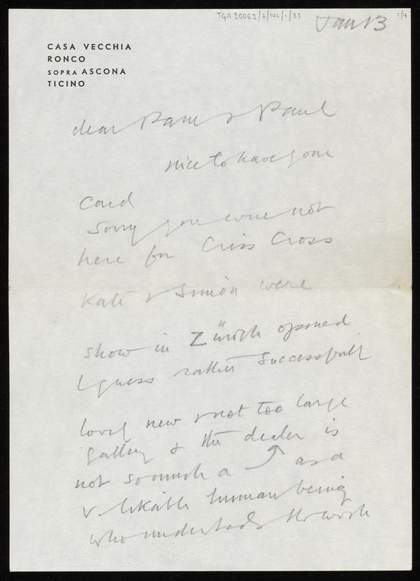 TGA 20062/2/
Jan 13
CASA VECCHIA
RONCO
SOPRA ASCONA
TICINO
dear Pam & Paul
nice to have your
card
Sorry you were not
here for Criss Cross
Kate & Simon were
show in Zürich opened
I guess rather successfully
lovely new & not too large
gallery & the dealer is
not so much a ↗ as a
v likable human being
who understands the work